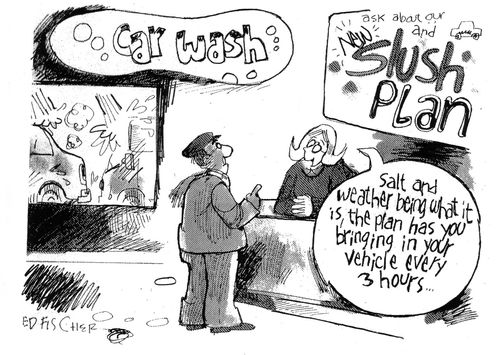 car wash
ask about our
and
NEW
Slush
PLAN
Salt and
weather being what it
is, the plan has you
bringing in your
vehicle every
3 hours...
ED FISCHER